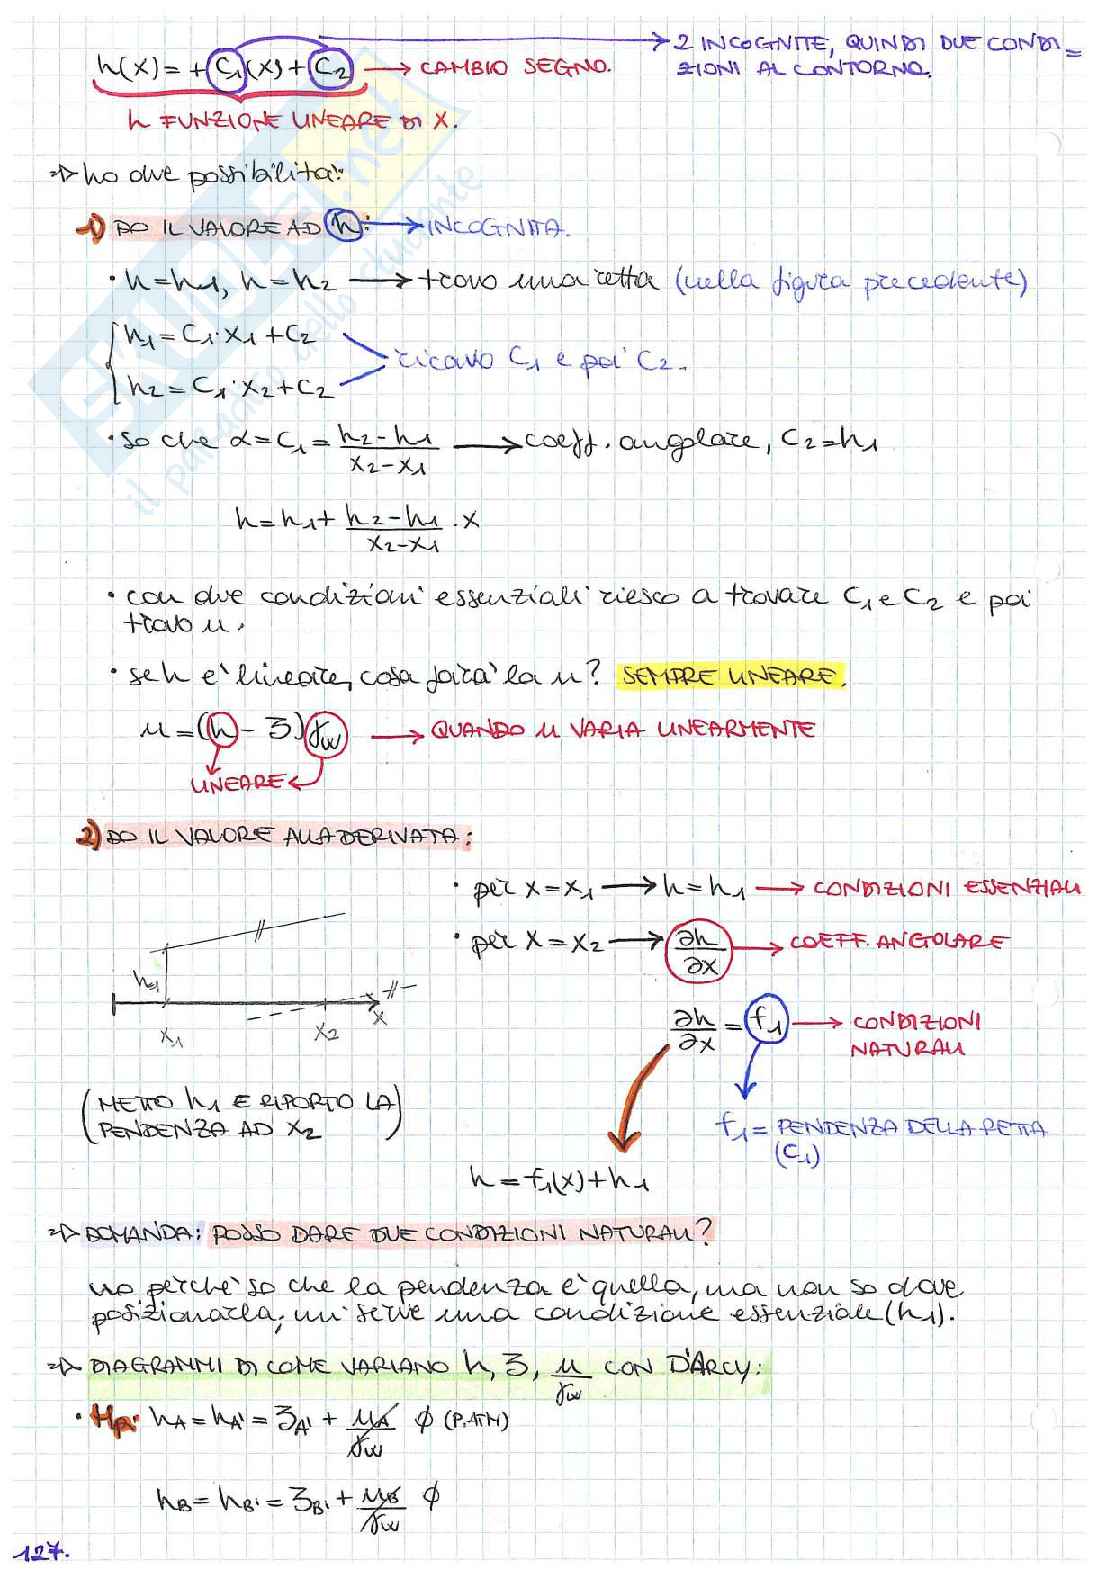 h(x) = + C1(x) + C2 → CAMBIO SEGNO.
→ 2 INCOGNITE, QUINDI DUE CONDI=
ZIONI AL CONTORNO.
h FUNZIONE LINEARE DI X.
⇒ ho due possibilità:
1) DO IL VALORE AD h: → INCOGNITA.
• h=h1, h=h2 → trovo una retta (nella figura precedente)
h1 = C1·x1 + C2
h2 = C1·x2 + C2
ricavo C1 e poi C2.
• so che α = C1 = (h2-h1)/(x2-x1) → coeff. angolare, C2=h1
h = h1 + (h2-h1)/(x2-x1) · x
• con due condizioni essenziali riesco a trovare C1 e C2 e poi
trovo u.
• se h è lineare, cosa farà la u? SEMPRE LINEARE.
u = (h - z)γw → QUANDO u VARIA LINEARMENTE
LINEARE
2) DO IL VALORE ALLA DERIVATA:
• per x = x1 → h = h1 → CONDIZIONI ESSENZIALI
• per x = x2 → ∂h/∂x → COEFF. ANGOLARE
h1
x1 x2 x
∂h/∂x = f1 → CONDIZIONI
NATURALI
(METTO h1 E RIPORTO LA
PENDENZA AD x2)
f1 = PENDENZA DELLA RETTA
(C1)
h = f1(x) + h1
⇒ DOMANDA: POSSO DARE DUE CONDIZIONI NATURALI?
no perchè so che la pendenza è quella, ma non so dove
posizionarla, mi serve una condizione essenziale (h1).
⇒ DIAGRAMMI DI COME VARIANO h, z, u/γw CON D'ARCY:
• Hp: hA = hA' = zA' + uA/γw ϕ (P.ATM)
hB = hB' = zB' + uB/γw ϕ
127.
SKUOLA.net
il paradiso dello studente